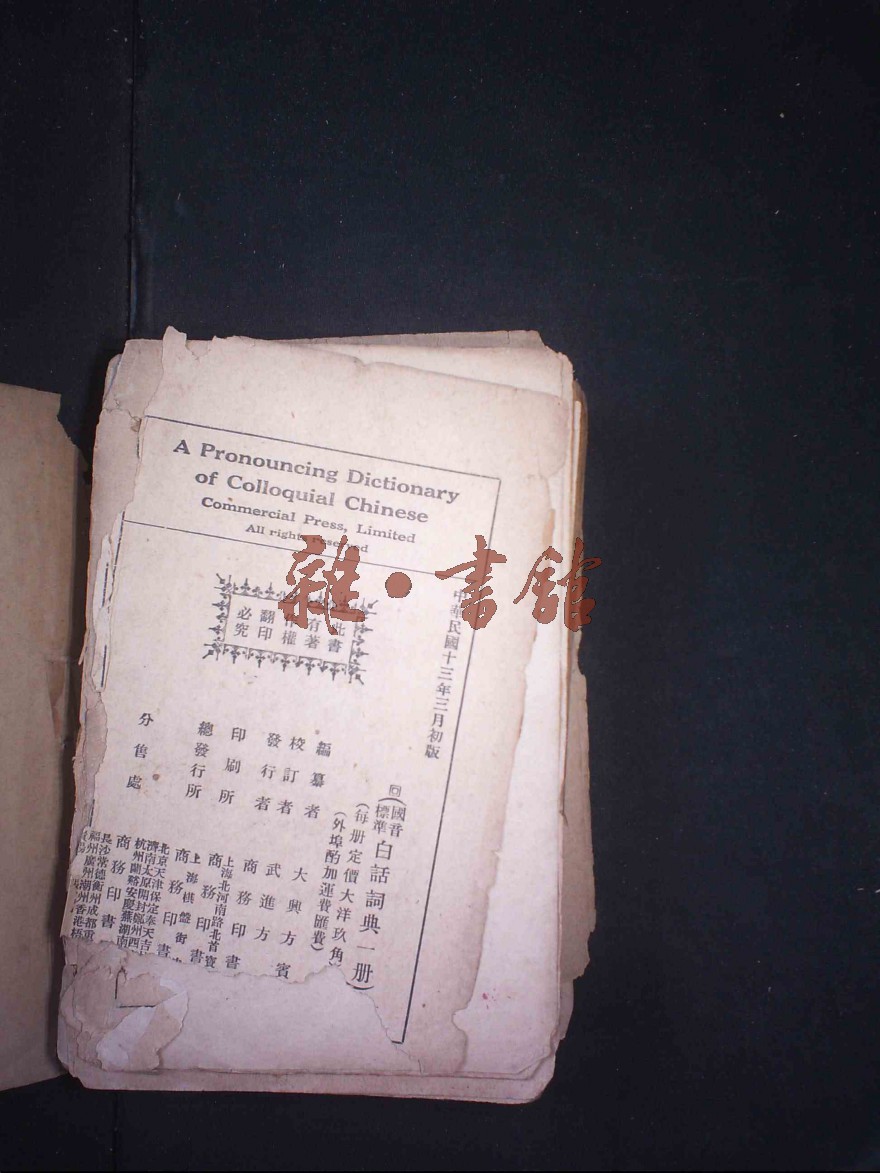 A Pronouncing Dictionary
of Colloquial Chinese
Commercial Press, Limited
All rights reserved
雜·書館
此書
有著
作權
翻印
必究
中華民國十三年三月初版
國音
標準
白話詞典一册
(每册定價大洋玖角)
(外埠酌加運費匯費)
編纂者 大興方賓
校訂者 武進方
發行者 商務印書
印刷所 上海北河南路北首寶
商務印書
總發行所 上海棋盤街中
商務印書
分售處 北京天津保定奉天吉
濟南太原開封鄭州西
杭州蘭谿安慶蕪湖南
商務印書
長沙常德衡州成都重
福州廣州潮州香港梧